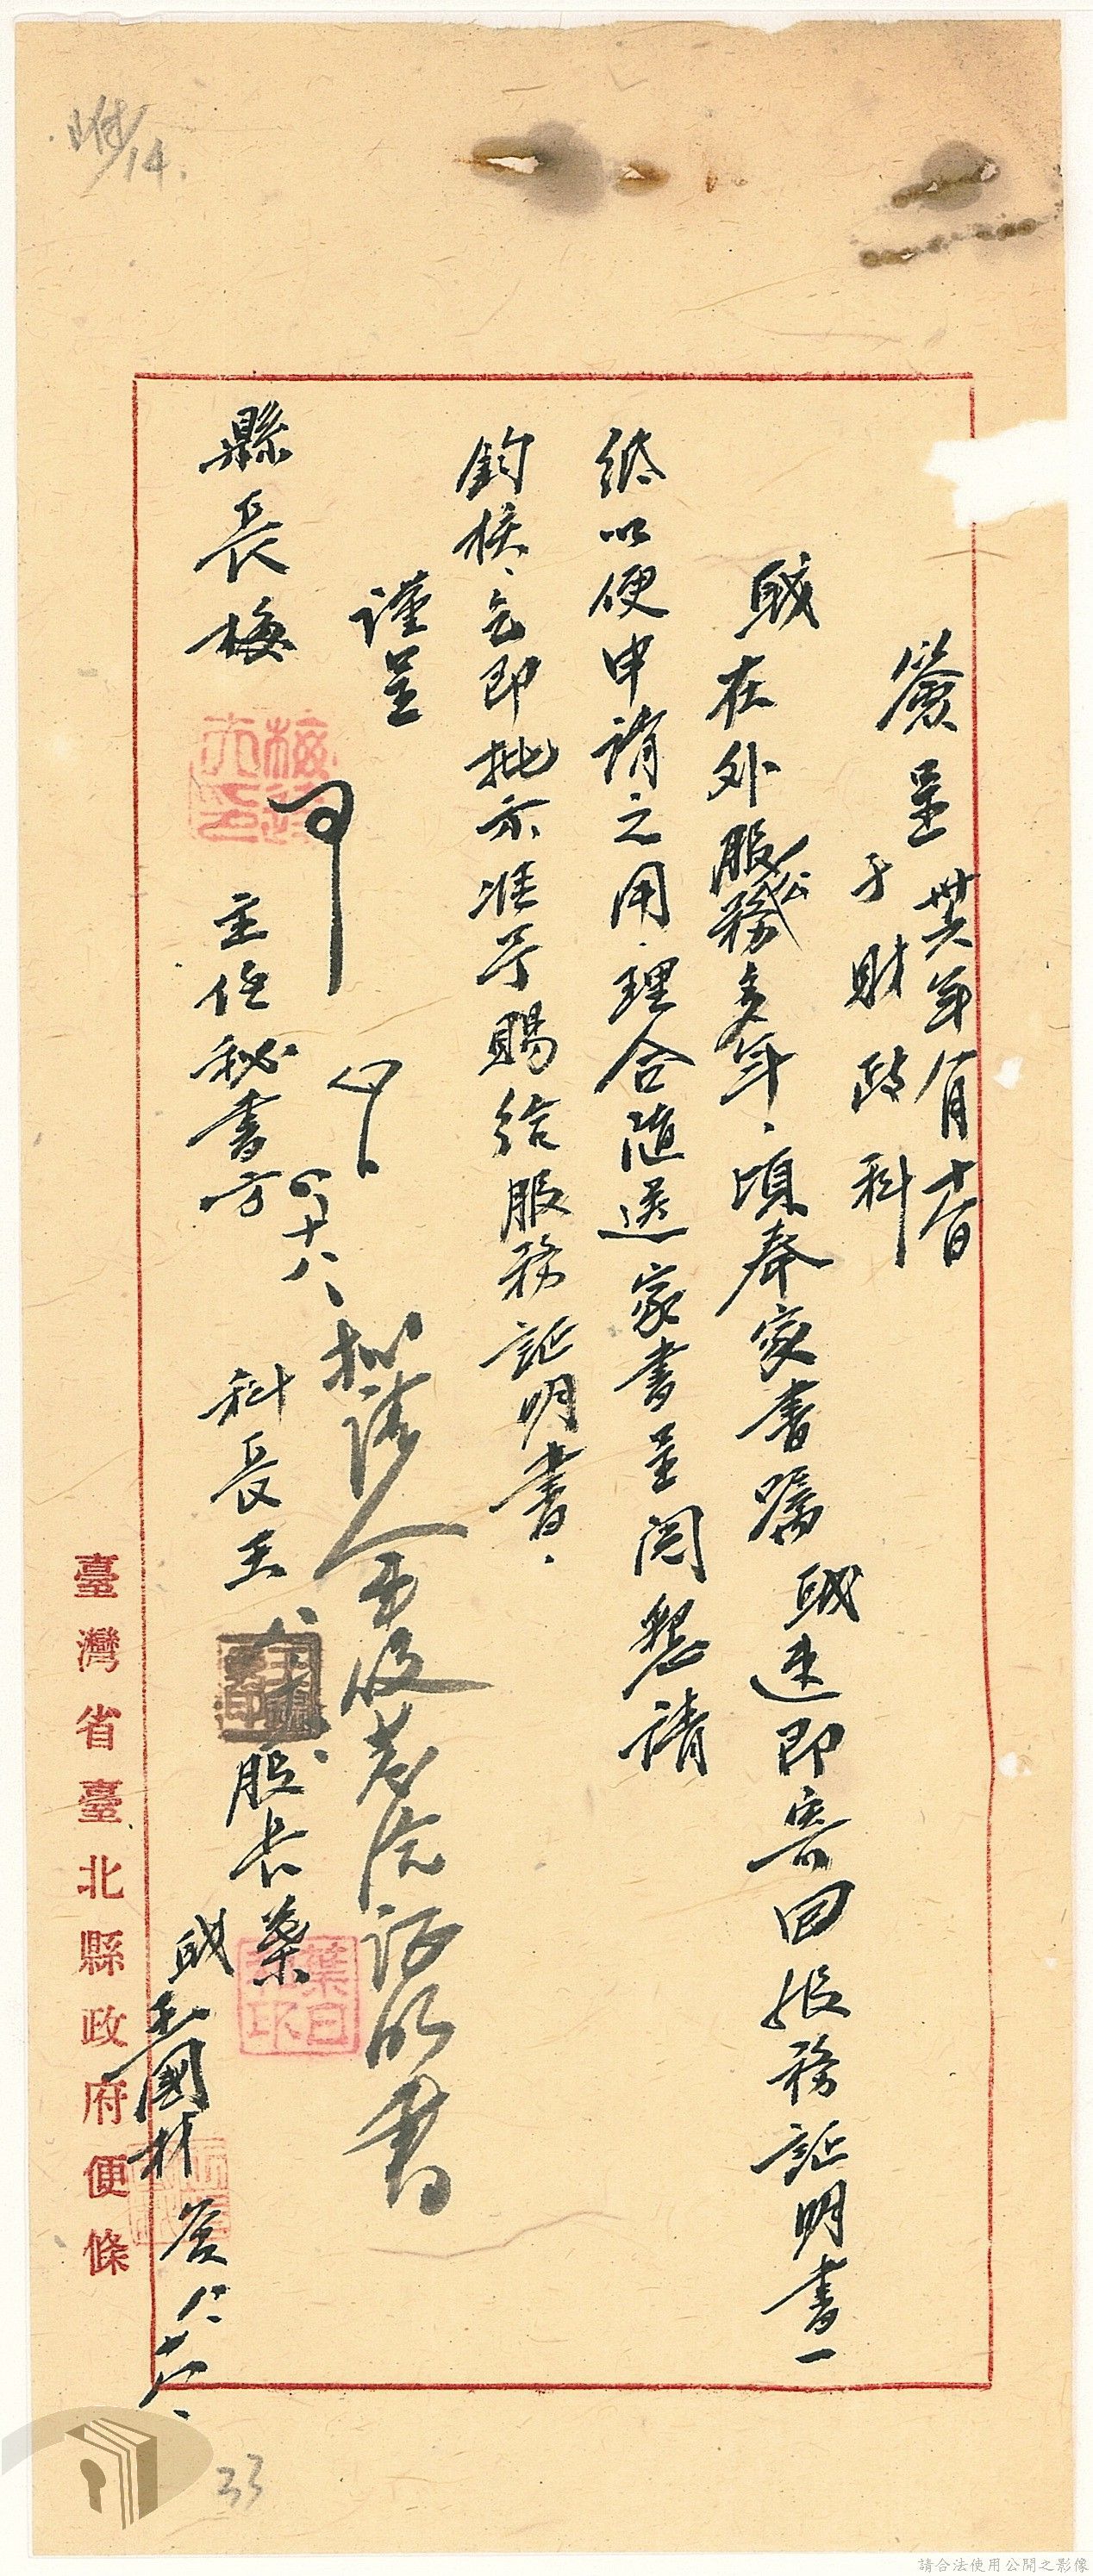 附14.
簽呈 卅六年八月十八日
于財政科
職在外服務多年、頃奉家書囑職速即寄回服務証明書一
公
紙以便申請之用、理合隨送家書呈閱懇請
鈞核、乞即批示准予賜給服務証明書、
謹呈
縣長梅
主任秘書方
科長王
股長葉
可
八、十八、
擬請人事股發給証明書
職王國材 簽 八、十八、
臺灣省臺北縣政府便條
33
請合法使用公開之影像